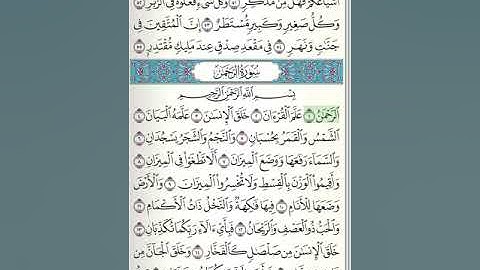 أَشْيَاعَكُمْ فَهَلْ مِن مُّدَّكِرٍ ٥١ وَكُلُّ شَىْءٍ فَعَلُوهُ فِى ٱلزُّبُرِ ٥٢
وَكُلُّ صَغِيرٍ وَكَبِيرٍ مُّسْتَطَرٌ ٥٣ إِنَّ ٱلْمُتَّقِينَ فِى
جَنَّٰتٍ وَنَهَرٍ ٥٤ فِى مَقْعَدِ صِدْقٍ عِندَ مَلِيكٍ مُّقْتَدِرٍۭ ٥٥
سُورَةُ الرَّحْمَٰن
بِسْمِ ٱللَّهِ ٱلرَّحْمَٰنِ ٱلرَّحِيمِ
ٱلرَّحْمَٰنُ ١ عَلَّمَ ٱلْقُرْءَانَ ٢ خَلَقَ ٱلْإِنسَٰنَ ٣ عَلَّمَهُ ٱلْبَيَانَ ٤
ٱلشَّمْسُ وَٱلْقَمَرُ بِحُسْبَانٍ ٥ وَٱلنَّجْمُ وَٱلشَّجَرُ يَسْجُدَانِ ٦
وَٱلسَّمَآءَ رَفَعَهَا وَوَضَعَ ٱلْمِيزَانَ ٧ أَلَّا تَطْغَوْا۟ فِى ٱلْمِيزَانِ ٨
وَأَقِيمُوا۟ ٱلْوَزْنَ بِٱلْقِسْطِ وَلَا تُخْسِرُوا۟ ٱلْمِيزَانَ ٩ وَٱلْأَرْضَ
وَضَعَهَا لِلْأَنَامِ ١٠ فِيهَا فَٰكِهَةٌ وَٱلنَّخْلُ ذَاتُ ٱلْأَكْمَامِ ١١
وَٱلْحَبُّ ذُو ٱلْعَصْفِ وَٱلرَّيْحَانُ ١٢ فَبِأَىِّ ءَالَآءِ رَبِّكُمَا تُكَذِّبَانِ ١٣
خَلَقَ ٱلْإِنسَٰنَ مِن صَلْصَٰلٍ كَٱلْفَخَّارِ ١٤ وَخَلَقَ ٱلْجَآنَّ مِن